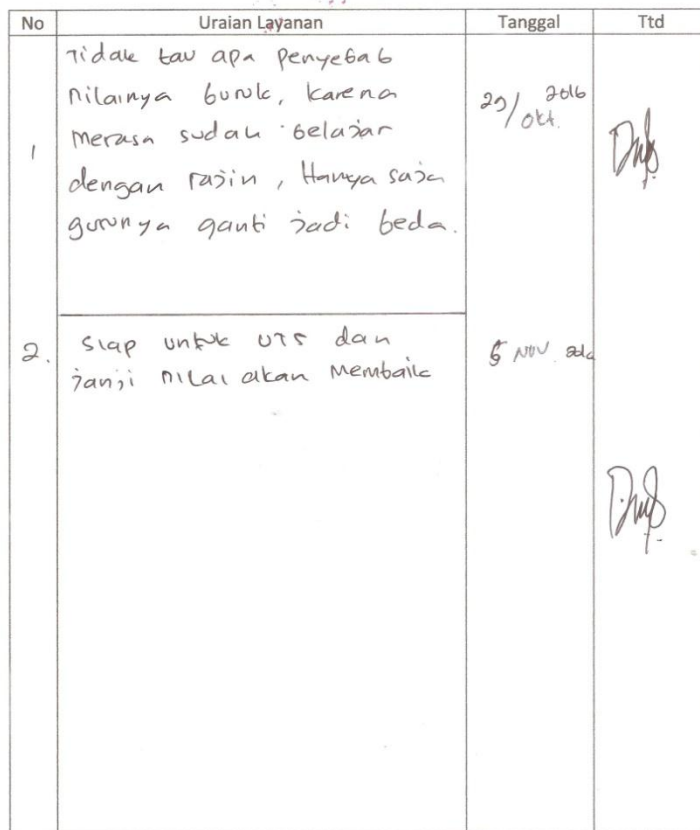 No Uraian Layanan Tanggal Ttd
1
Tidak tau apa penyebab
nilainya buruk, karena
merasa sudah belajar
dengan rajin, Hanya saja
gurunya ganti jadi beda.
29/okt. 2016
2.
Siap untuk UTS dan
janji nilai akan membaik
5 NOV